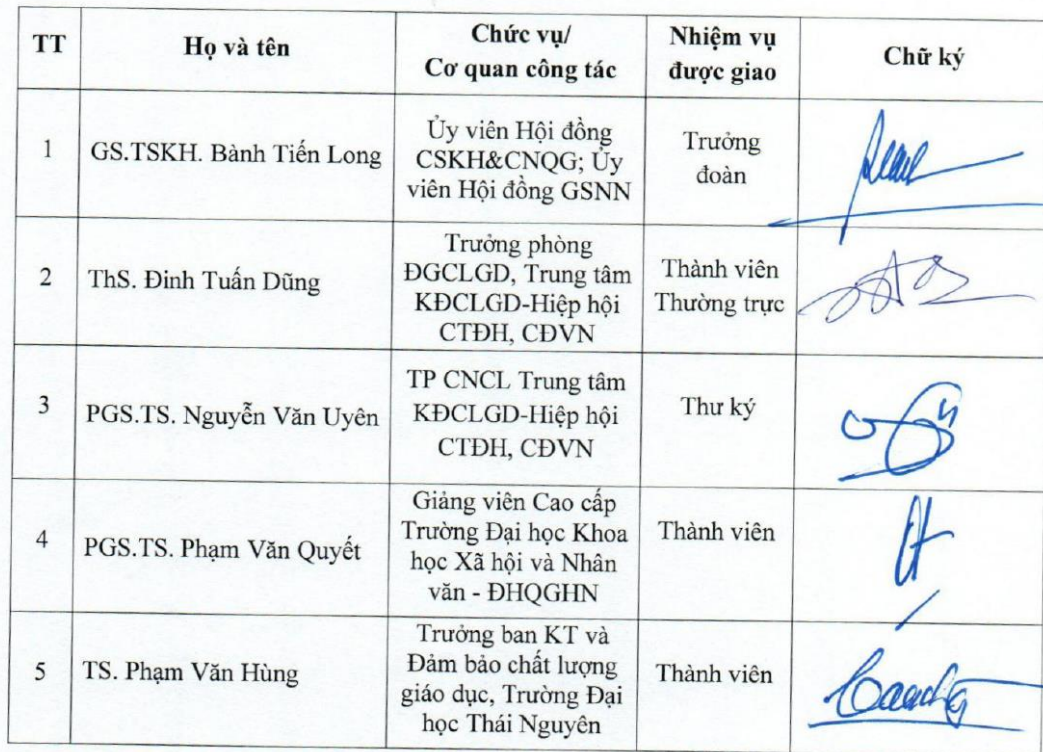 TT
Họ và tên
Chức vụ/
Cơ quan công tác
Nhiệm vụ
được giao
Chữ ký
1
GS.TSKH. Bành Tiến Long
Ủy viên Hội đồng
CSKH&CNQG; Ủy
viên Hội đồng GSNN
Trưởng
đoàn
2
ThS. Đinh Tuấn Dũng
Trưởng phòng
ĐGCLGD, Trung tâm
KĐCLGD-Hiệp hội
CTĐH, CĐVN
Thành viên
Thường trực
3
PGS.TS. Nguyễn Văn Uyên
TP CNCL Trung tâm
KĐCLGD-Hiệp hội
CTĐH, CĐVN
Thư ký
4
PGS.TS. Phạm Văn Quyết
Giảng viên Cao cấp
Trường Đại học Khoa
học Xã hội và Nhân
văn - ĐHQGHN
Thành viên
5
TS. Phạm Văn Hùng
Trưởng ban KT và
Đảm bảo chất lượng
giáo dục, Trường Đại
học Thái Nguyên
Thành viên